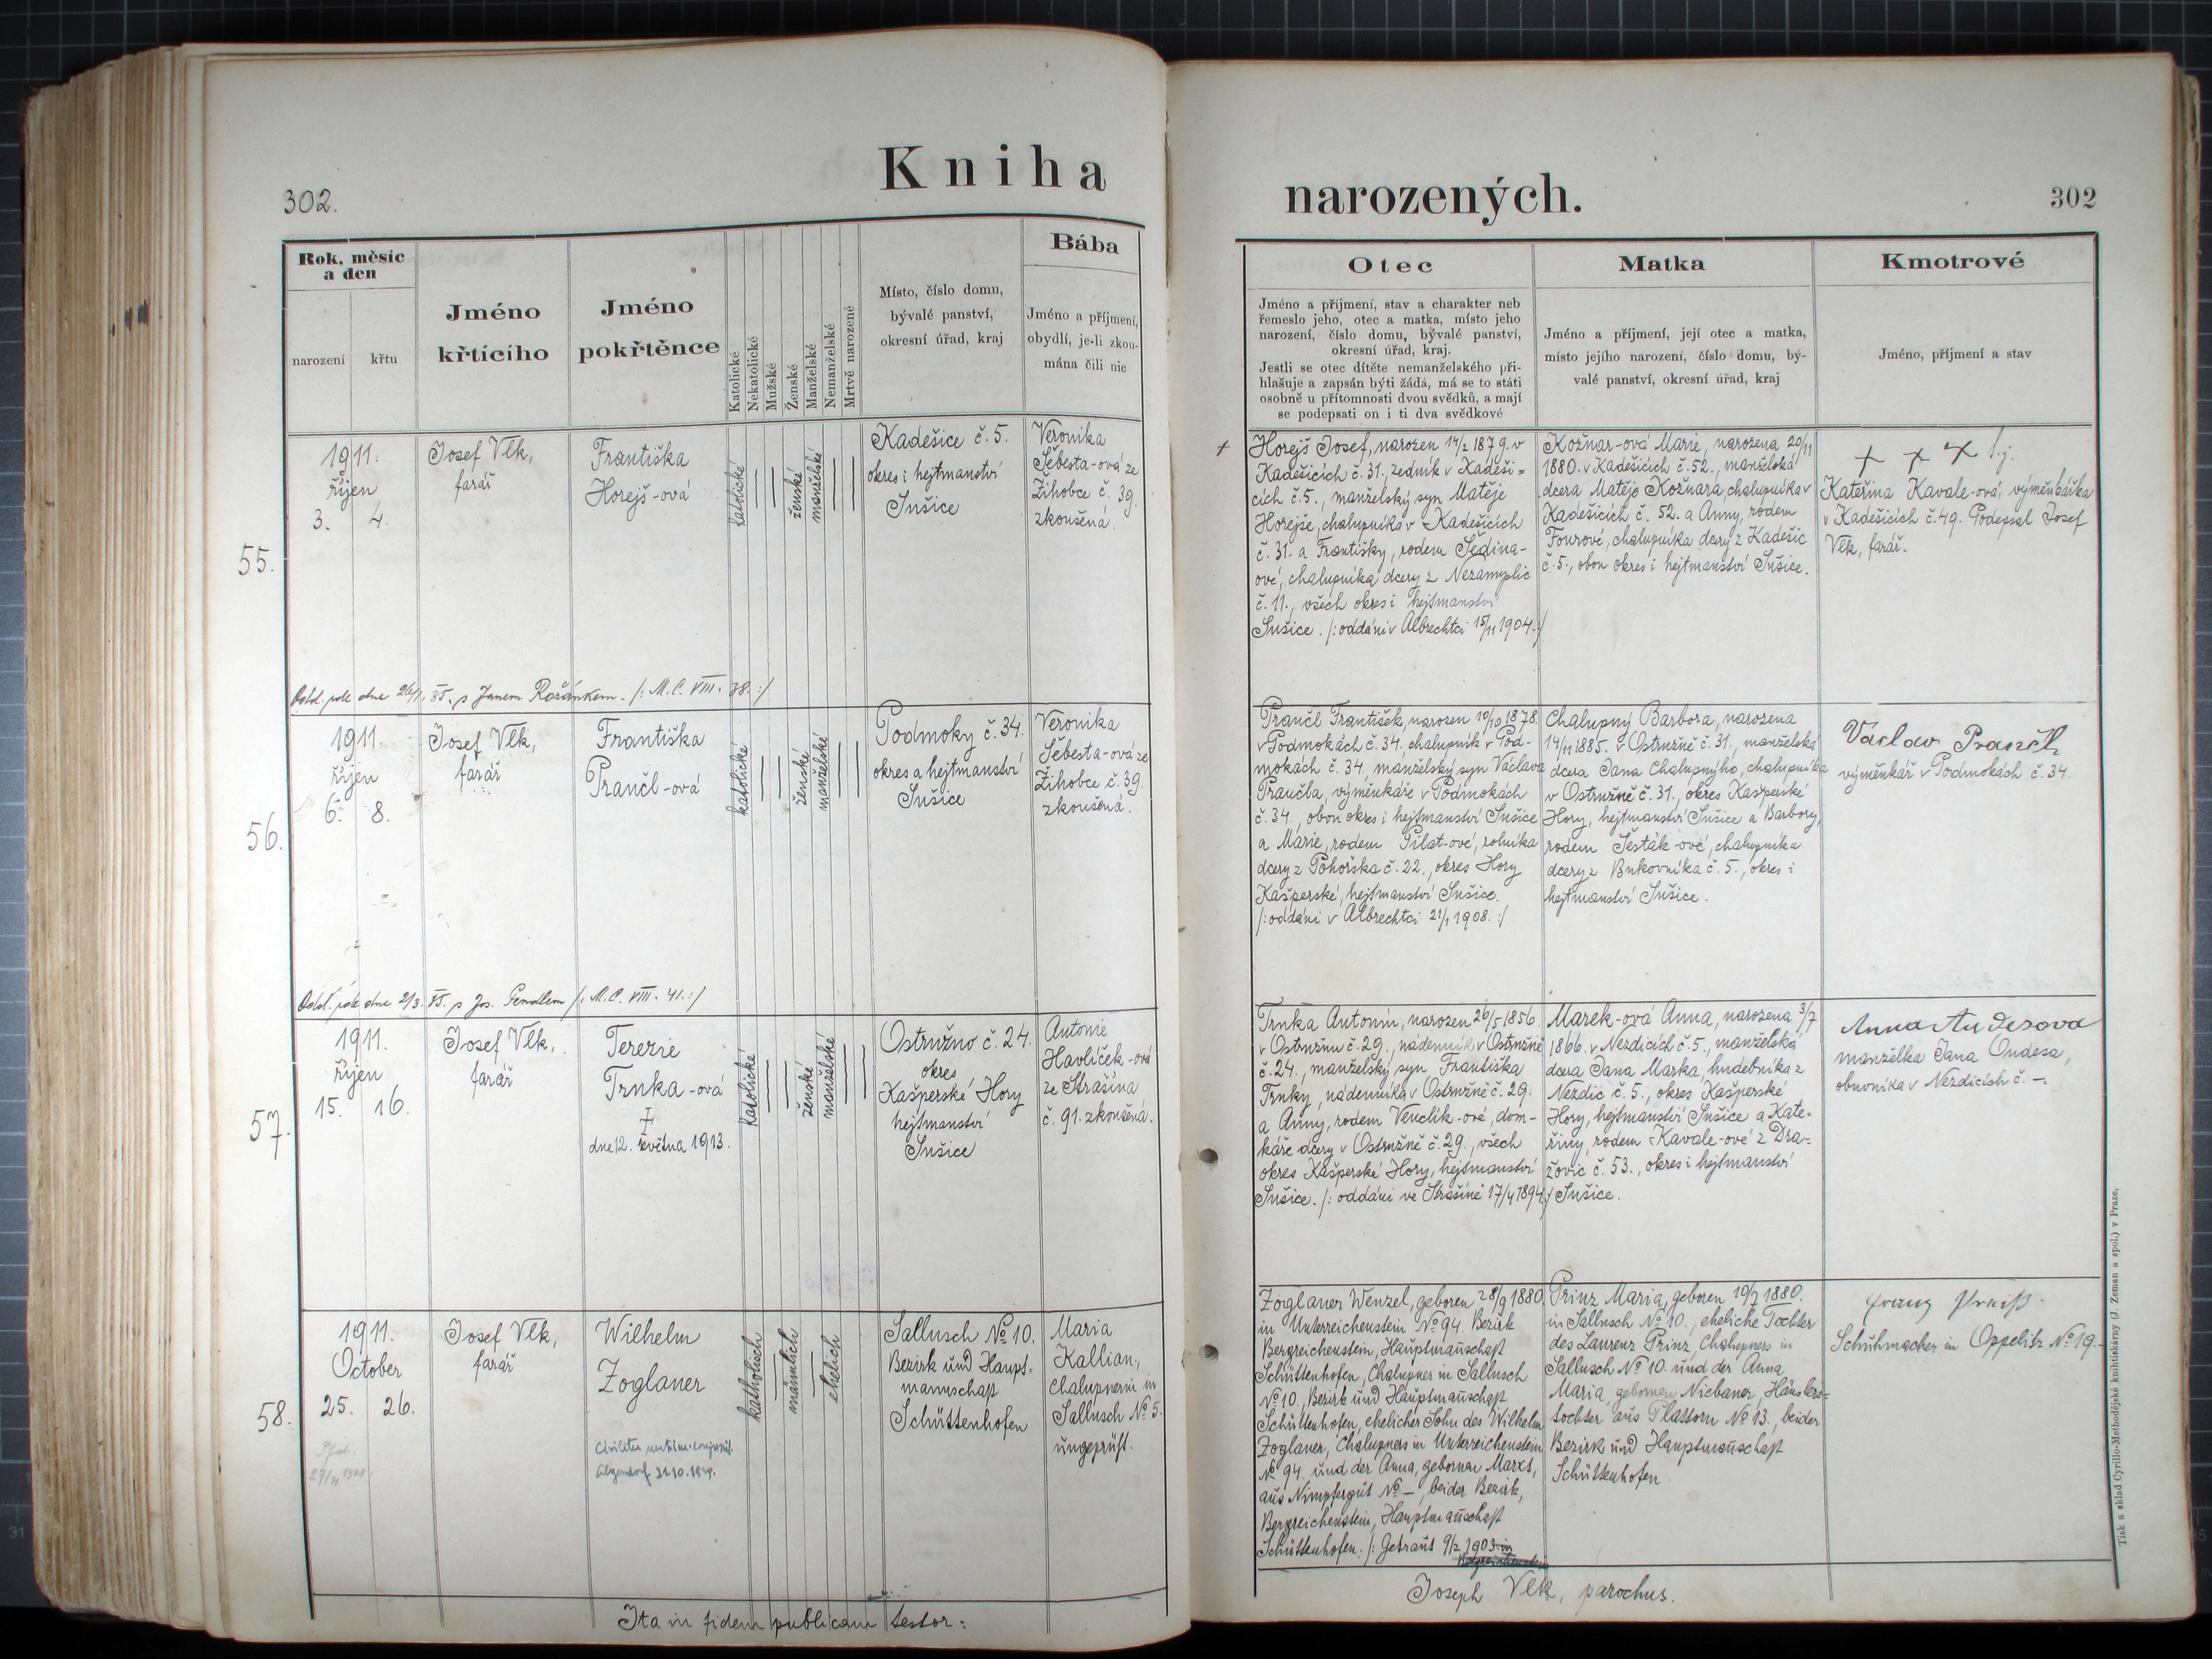 302.
Kniha
Rok, měsíc
a den
narození
křtu
Jméno
křtícího
Jméno
pokřtěnce
Katolické
Nekatolické
Mužské
Ženské
Manželské
Nemanželské
Mrtvě narozené
Místo, číslo domu,
bývalé panství,
okresní úřad, kraj
Bába
Jméno a příjmení,
obydlí, je-li zkou-
mána čili nic
55.
1911.
říjen
3. 4.
Josef Vlk,
farář
Františka
Horejš-ová
katolické
ženské
manželské
Kadešice č. 5.
okres i hejtmanství
Sušice
Veronika
Šebesta-ová ze
Žihobce č. 39.
zkoušená.
Odd. zde dne s Janem Rožánkem. /: M.C. VIII. 38. :/
56.
1911.
říjen
6. 8.
Josef Vlk,
farář
Františka
Prančl-ová
katolické
ženské
manželské
Podmoky č. 34.
okres a hejtmanství
Sušice
Veronika
Šebesta-ová ze
Žihobce č. 39.
zkoušená.
Odd. zde dne s Jos. /: M.C. VIII. 41. :/
57.
1911.
říjen
15. 16.
Josef Vlk,
farář
Terezie
Trnka-ová
†
dne 12. května 1913.
katolické
ženské
manželské
Ostružno č. 24.
okres
Kašperské Hory
hejtmanství
Sušice
Antonie
Havlíček-ová
ze Strašína
č. 91. zkoušená.
58.
1911.
October
25. 26.
Josef Vlk,
farář
Wilhelm
Zoglauer
21.10.1939.
katholisch
männlich
ehelich
Sallusch No 10.
Bezirk und Haupt-
mannschaft
Schüttenhofen
Maria
Kallian,
Chalupnerin in
Sallusch No 5.
ungeprüft.
Ita in fidem publicam testor:
narozených.
302
Otec
Jméno a příjmení, stav a charakter neb
řemeslo jeho, otec a matka, místo jeho
narození, číslo domu, bývalé panství,
okresní úřad, kraj.
Jestli se otec dítěte nemanželského při-
hlašuje a zapsán býti žádá, má se to státi
osobně u přítomnosti dvou svědků, a mají
se podepsati on i ti dva svědkové
Matka
Jméno a příjmení, její otec a matka,
místo jejího narození, číslo domu, bý-
valé panství, okresní úřad, kraj
Kmotrové
Jméno, příjmení a stav
Horejš Josef, narozen 14/2 1879. v
Kadešicích č. 31., zedník v Kadeši=
cích č. 5., manželský syn Matěje
Horejše, chalupníka v Kadešicích
č. 31. a Františky, rodem Šedina-
ové, chalupníka dcery z Nezamyslic
č. 11., všech okres i hejtmanství
Sušice. /: oddáni v Albrechtci 15/11 1904. :/
Kožnar-ová Marie, narozena 20/11
1880. v Kadešicích č. 52., manželská
dcera Matěje Kožnara, chalupníka v
Kadešicích č. 52. a Anny, rodem
Fourové, chalupníka dcery z Kadešic
č. 5., obou okres i hejtmanství Sušice.
+ + + t.j.
Kateřina Kavale-ová, výměnkářka
v Kadešicích č. 49. Podepsal Josef
Vlk, farář.
Prančl František, narozen 10/10 1878.
v Podmokách č. 34. chalupník v Pod-
mokách č. 34, manželský syn Václava
Prančla, výměnkáře v Podmokách
č. 34., obou okres i hejtmanství Sušice
a Marie, rodem Pilat-ové, rolníka
dcery z Pohorska č. 22., okres Hory
Kašperské, hejtmanství Sušice.
/: oddáni v Albrechtci 21/1 1908. :/
Chalupný Barbora, narozena
14/11 1885. v Ostružně č. 31., manželská
dcera Jana Chalupnýho, chalupníka
v Ostružně č. 31., okres Kašperské
Hory, hejtmanství Sušice a Barbory,
rodem Šesták-ové, chalupníka
dcery z Bukovníka č. 5., okres i
hejtmanství Sušice.
Václav Prančl,
výměnkář v Podmokách č. 34.
Trnka Antonín, narozen 26/5 1856.
v Ostružnu č. 29., nádenník v Ostružně
č. 24., manželský syn Františka
Trnky, nádenníka v Ostružně č. 29.
a Anny, rodem Venclík-ové, dom-
káře dcery v Ostružně č. 29., všech
okres Kašperské Hory, hejtmanství
Sušice. /: oddáni ve Strašíně 17/4 1894. :/
Marek-ová Anna, narozena 3/7
1866. v Nezdicích č. 5., manželská
dcera Jana Marka, hudebníka z
Nezdic č. 5., okres Kašperské
Hory, hejtmanství Sušice a Kate-
řiny, rodem Kavale-ové z Dra-
žovic č. 53., okres i hejtmanství
Sušice.
Anna
manželka Jana Ondesa,
obuvníka v Nezdicích č. —.
Zoglauer Wenzel, geboren 28/9 1880.
in Unterreichenstein No 94. Bezirk
Bergreichenstein, Hauptmanschaft
Schüttenhofen, Chalupner in Sallusch
No 10., Bezirk und Hauptmanschaft
Schüttenhofen, ehelicher Sohn des Wilhelm
Zoglauer, Chalupners in Unterreichenstein
No 94. und der Anna, gebornen Marxt,
aus Nimpfergut No —, beider Bezirk,
Bergreichenstein, Hauptmanschaft
Schüttenhofen. /: Getraut 9/2 1903 in
Bergreichenstein
Prinz Maria, geboren 10/7 1880.
in Sallusch No 10., eheliche Tochter
des Laurenz Prinz, Chalupners in
Sallusch No 10. und der Anna
Maria, gebornen Niebauer, Häuslers=
tochter aus Plattorn No 13., beider
Bezirk und Hauptmanschaft
Schüttenhofen.
Franz
Schuhmacher in Oppelitz No 19.
Joseph Vlk, parochus.
Tisk a sklad Cyrillo-Methodějské knihtiskárny (J. Zeman a spol.) v Praze.